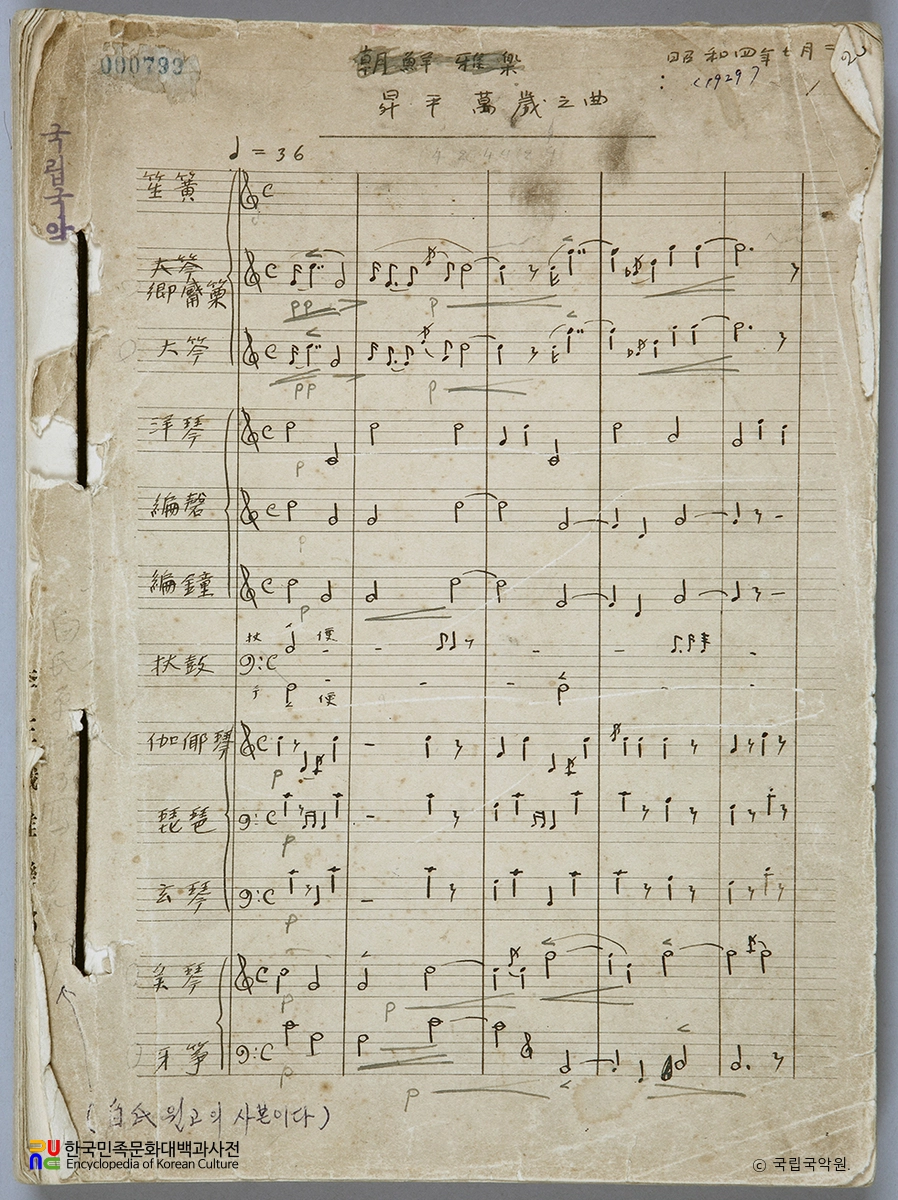 000793
朝鮮雅樂
昭和四年七月
(1929)
昇平萬歲之曲
국립국악
♩ = 36
笙簧
大笒
鄕觱篥
pp
p
大笒
pp
p
洋琴
p
編磬
p
編鐘
p
杖鼓
伽倻琴
p
琵琶
p
玄琴
p
奚琴
p
p
牙箏
p
p
(白氏 원고의 사본이다)
한국민족문화대백과사전
Encyclopedia of Korean Culture
© 국립국악원.